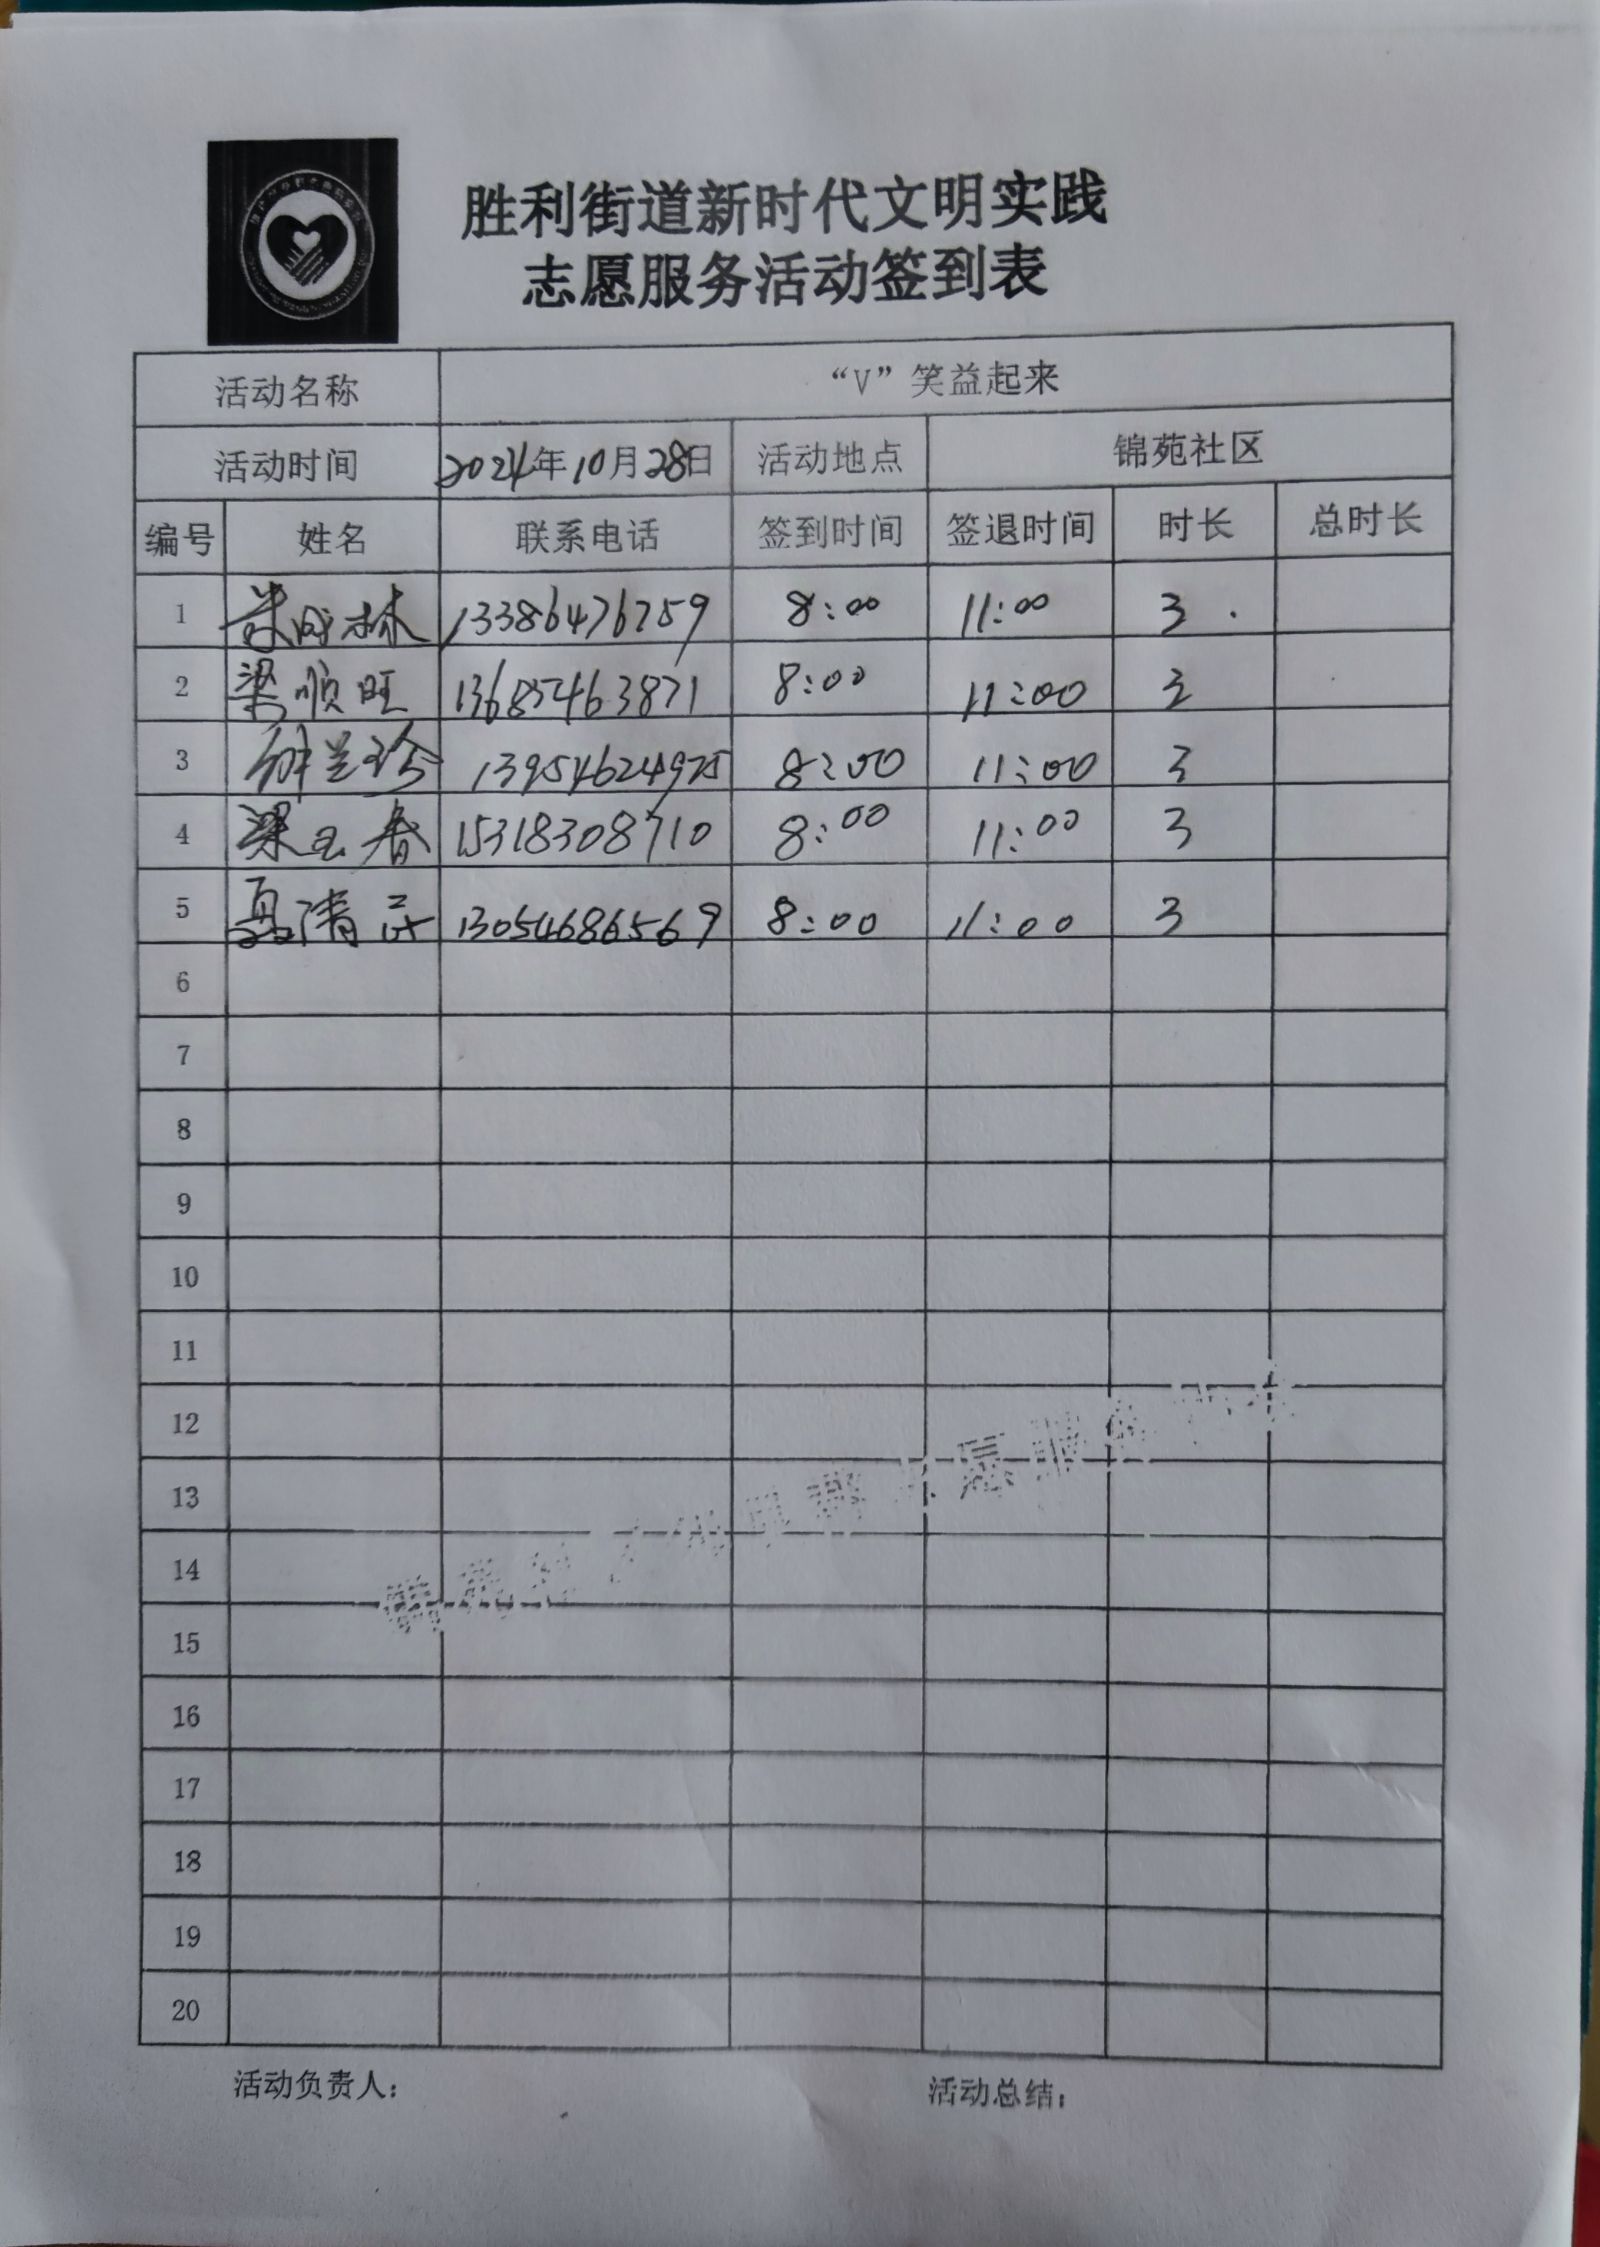 胜利街道新时代文明实践
志愿服务活动签到表
活动名称 “V”笑益起来
活动时间 2024年10月28日 活动地点 锦苑社区
编号 姓名 联系电话 签到时间 签退时间 时长 总时长
1 13386476759 8:00 11:00 3
2 梁顺旺 13685463871 8:00 11:00 3
3 薛兰珍 13954624975 8:00 11:00 3
4 梁玉春 15318308710 8:00 11:00 3
5 13054686569 8:00 11:00 3
6
7
8
9
10
11
12
13
14
15
16
17
18
19
20
活动负责人： 活动总结：